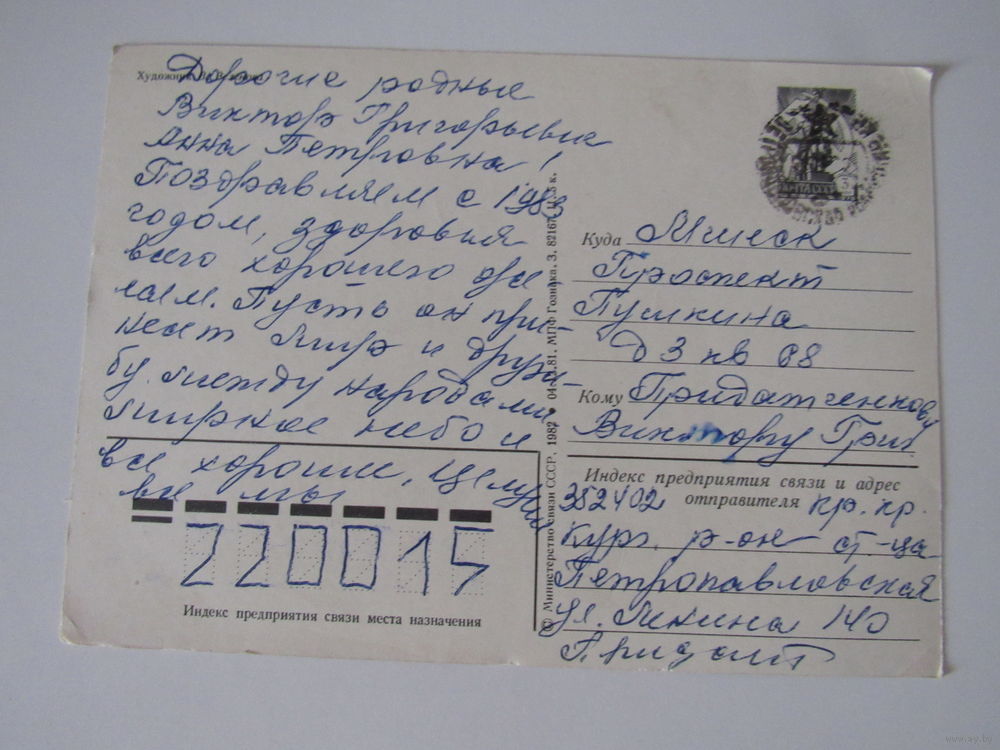 Художник
Дорогие родные
Виктор Григорьевич
Анна Петровна!
Поздравляем с 1983
годом, здоровья
всего хорошего же-
лаем. Пусть он при-
несет мир и друж-
бу между народами
мирное небо и
все хорошии. Целуем
все мы
220015
Индекс предприятия связи места назначения
© Министерство связи СССР, 1982 04. .81. МПФ Гознака. З. 82167. Ц. 3 к.
ПОЧТА СССР
Куда Минск
Проспект
Пушкина
д 3 кв 68
Кому Придатченкову
Виктору Григ.
Индекс предприятия связи и адрес
отправителя
352402 Кр. кр.
Кург. р-он ст-ца
Петропавловская
ул. Ленина 140
Придат
www.ay.by